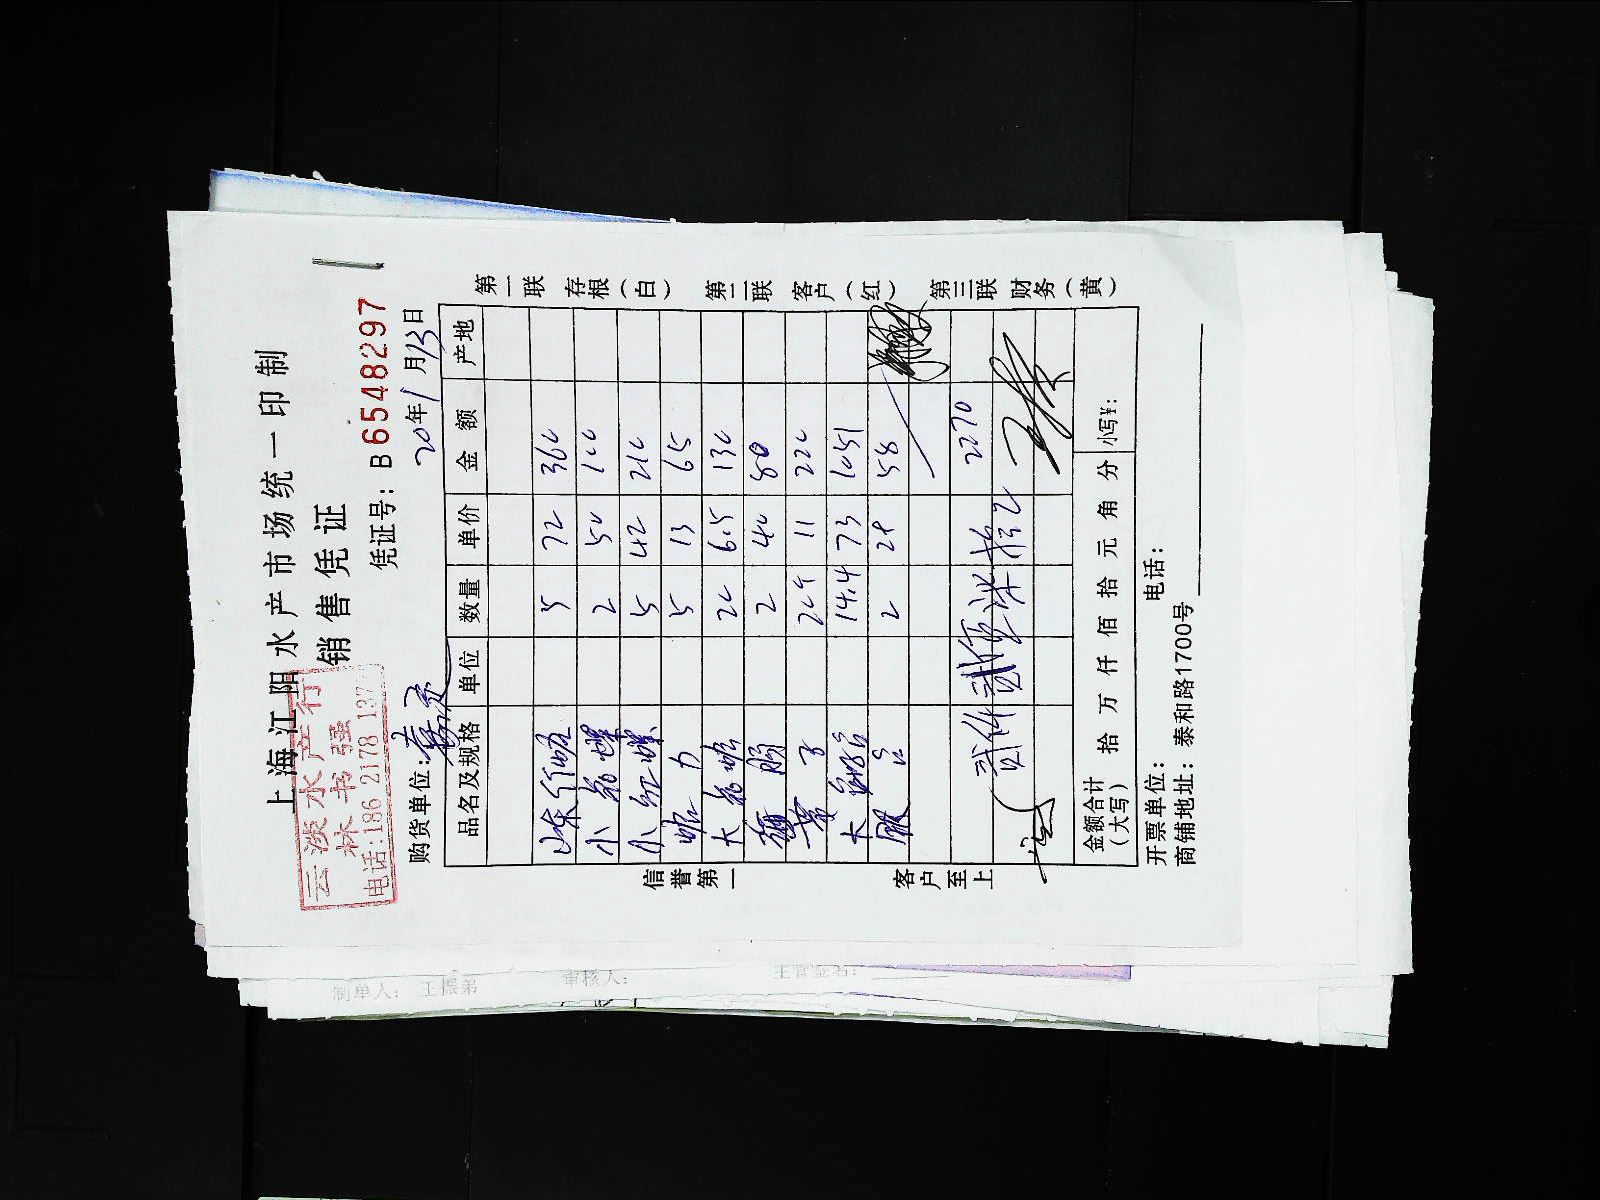 上海江阳水产市场统一印制
销售凭证
云淡水产行
林书强
电话:186 2178 137
凭证号: B 6548297
购货单位:
20年1月13日
品名及规格 单位 数量 单价 金额 产地
山东 5 72 360
小 2 50 100
小红 5 42 210
5 13 65
大 20 6.5 130
2 40 80
黄 20 11 220
大 14.4 73 1051
2 28 58
2270
贰仟贰佰柒拾
金额合计(大写) 拾 万 仟 佰 拾 元 角 分 小写¥:
开票单位: 电话:
商铺地址: 泰和路1700号
信誉第一 客户至上
第一联 存根(白) 第二联 客户(红) 第三联 财务(黄)
制单人: 王振弟 审核人: 主管签名: